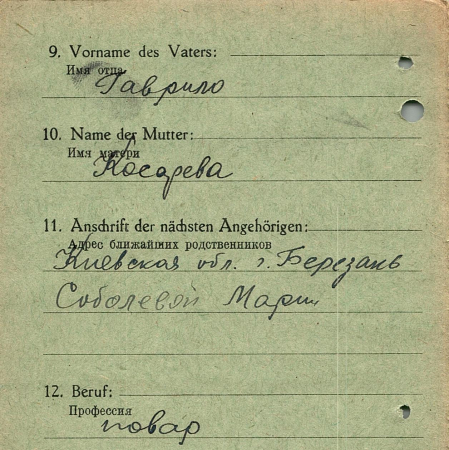 9. Vorname des Vaters:
Имя отца
Гаврило
10. Name der Mutter:
Имя матери
Косарева
11. Anschrift der nächsten Angehörigen:
Адрес ближайших родственников
Киевская обл. г. Березань
Соболевой Марии
12. Beruf:
Профессия
повар